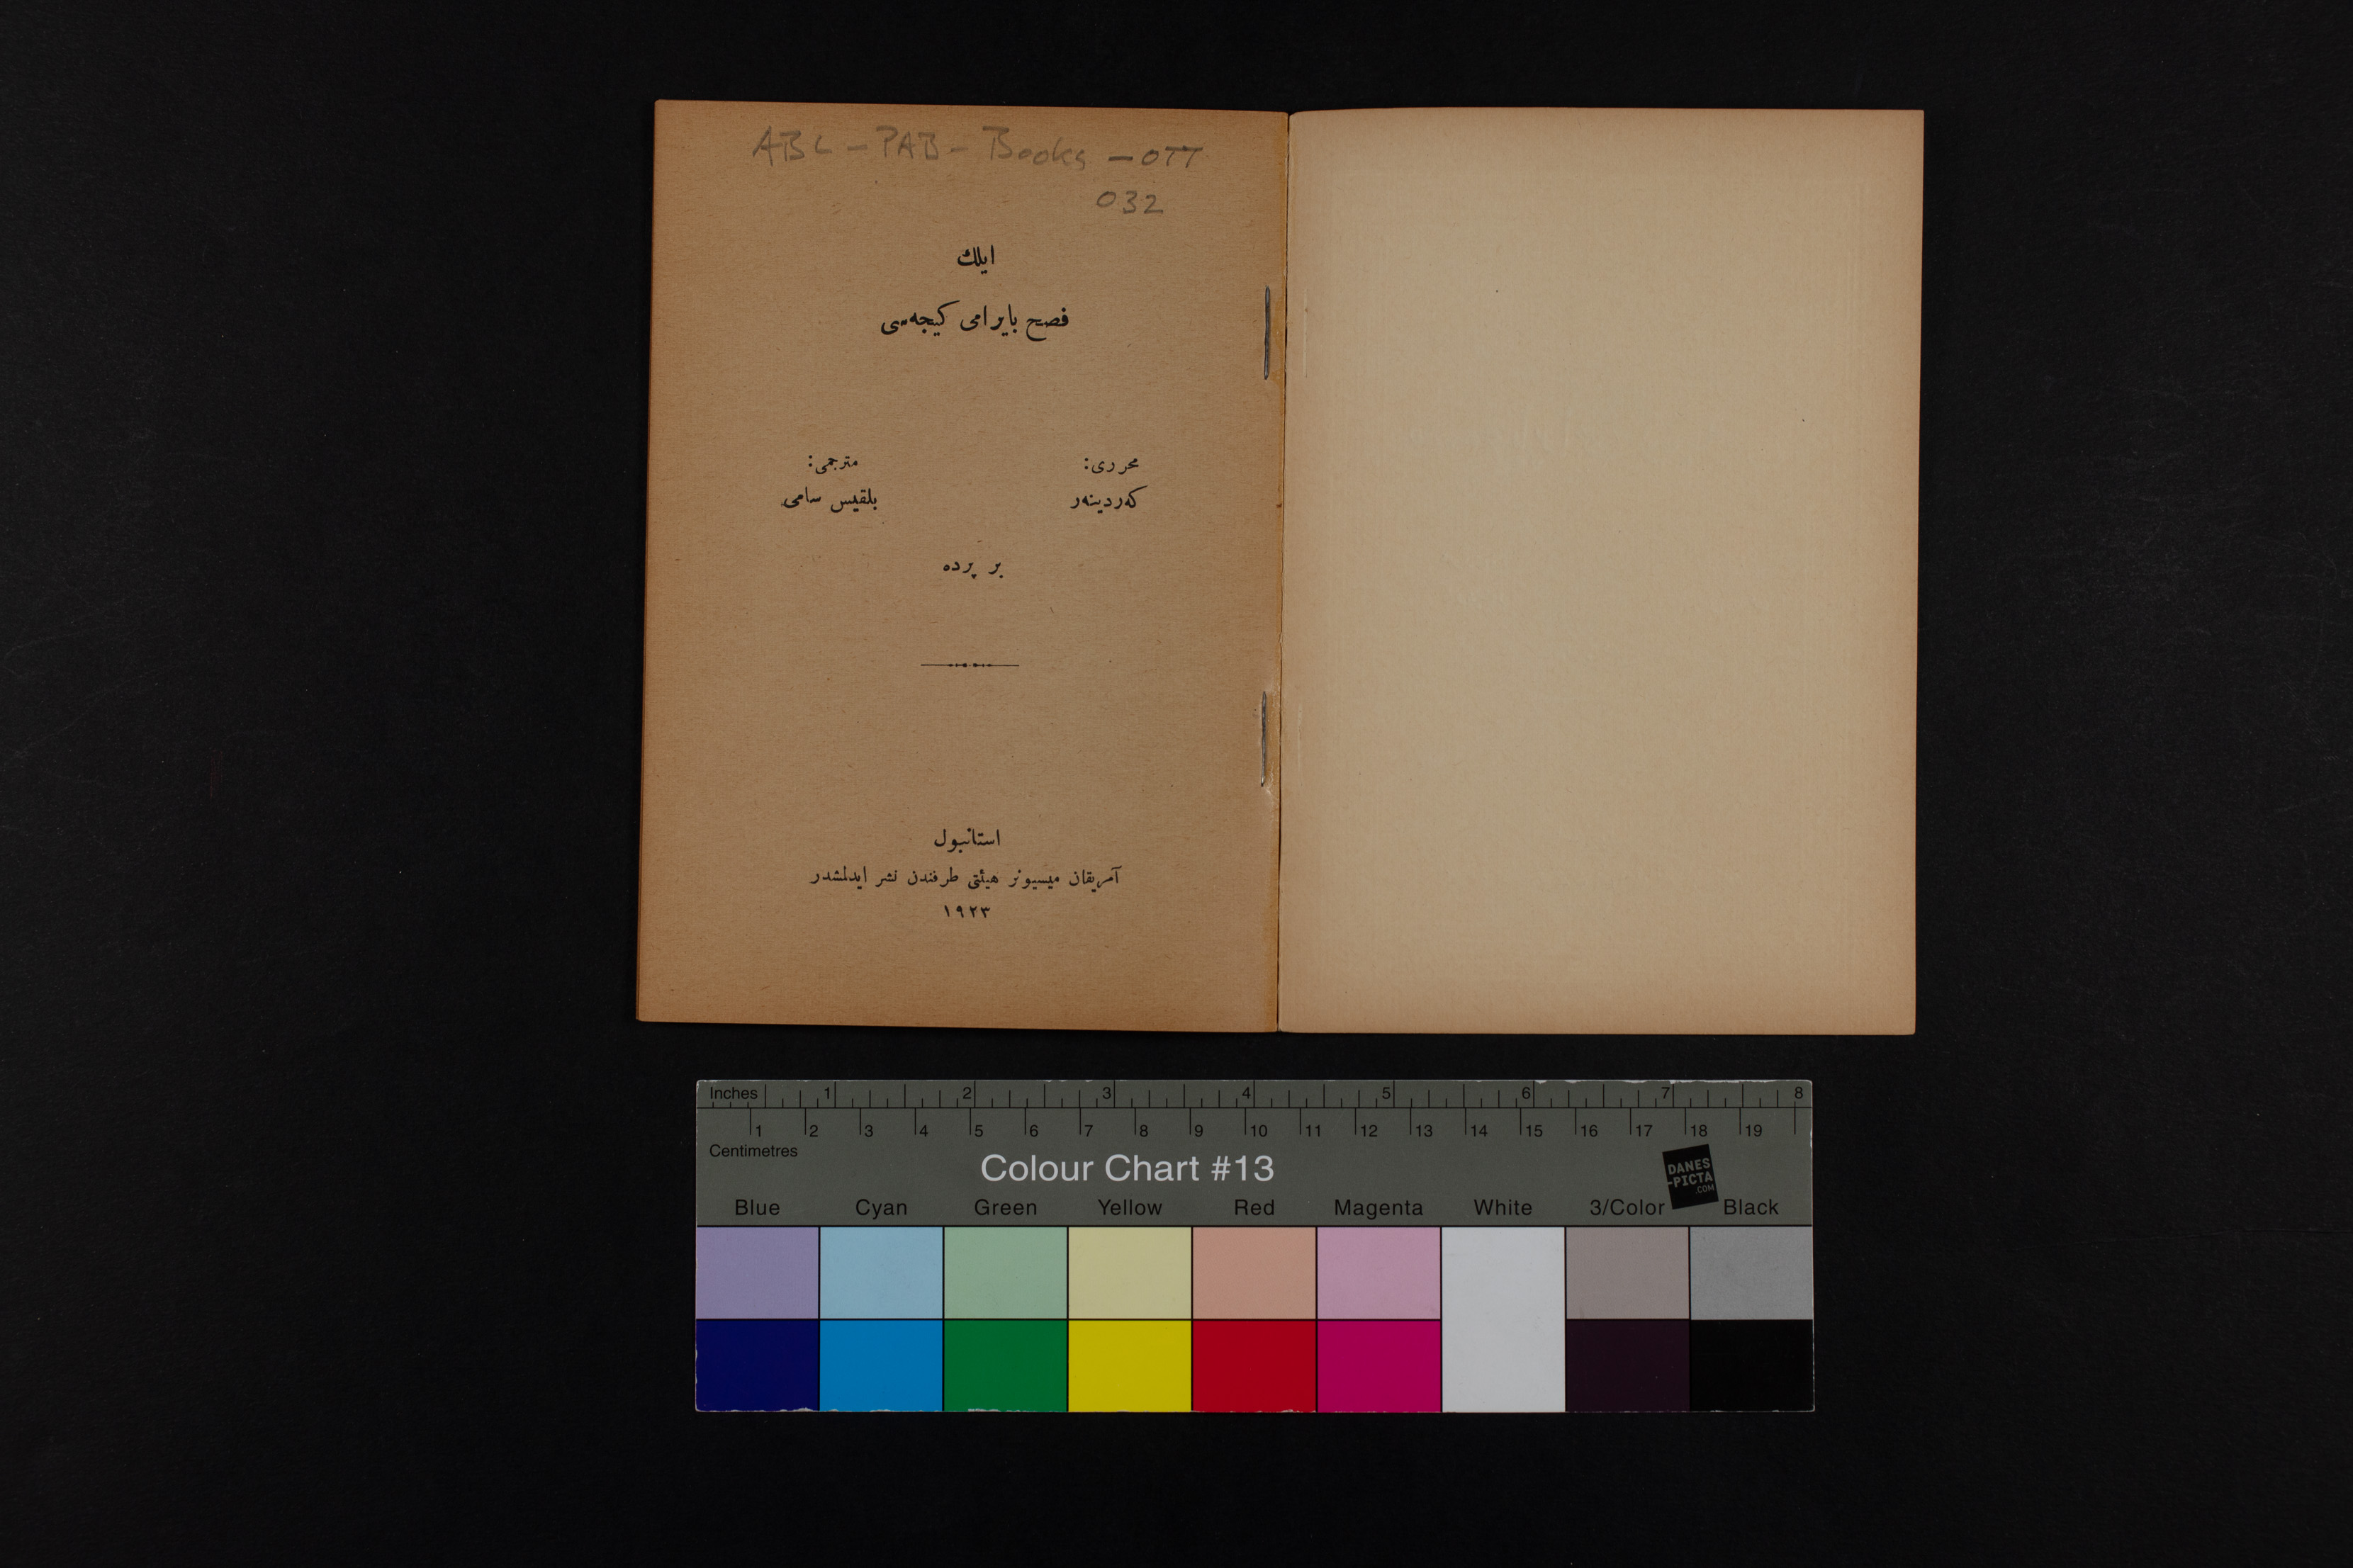 ABC - PAB - Books - OTT
032
ايلك
فصح بايرامى كيجه‌سى
محررى:
كه‌ردينه‌ر
مترجمى:
بلقيس سامى
بر پرده
استانبول
آمريقان ميسيونر هيئتى طرفندن نشر ايدلمشدر
١٩٢٣
Inches 1 2 3 4 5 6 7 8
1 2 3 4 5 6 7 8 9 10 11 12 13 14 15 16 17 18 19
Centimetres
Colour Chart #13
DANES
-PICTA
.COM
Blue Cyan Green Yellow Red Magenta White 3/Color Black